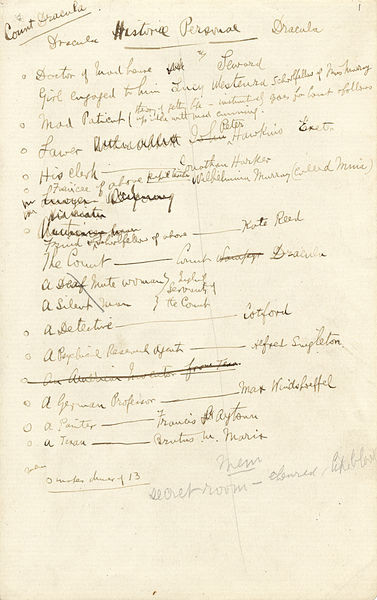 Count Dracula
Dracula Historiæ Personæ Dracula
Doctor of Mad house Seward
Girl engaged to him Lucy Westenra Schoolfellow of Miss Murray
Mad Patient (theory of getting life - instinctively goes for Count & follows
up idea with mad cunning).
Lawyer John Peter Hawkins Exeter
His clerk Jonathan Harker
Fiancee of above Wilhelmina Murray (called Mina)
Lawyer
Friend & schoolfellow of above Kate Reed
The Count Count Wampyr Dracula
A Deaf Mute woman } English
A Silent Man } servants of the Count
A Detective Cotford
A Psychical Research Agent Alfred Singleton
An American Inventor from Texas
A German Professor Max Windshoeffel
A Painter Francis Aytown
A Texan Brutus M. Marix
mem
makes dinner of 13
Mem
secret room - coloured like blood